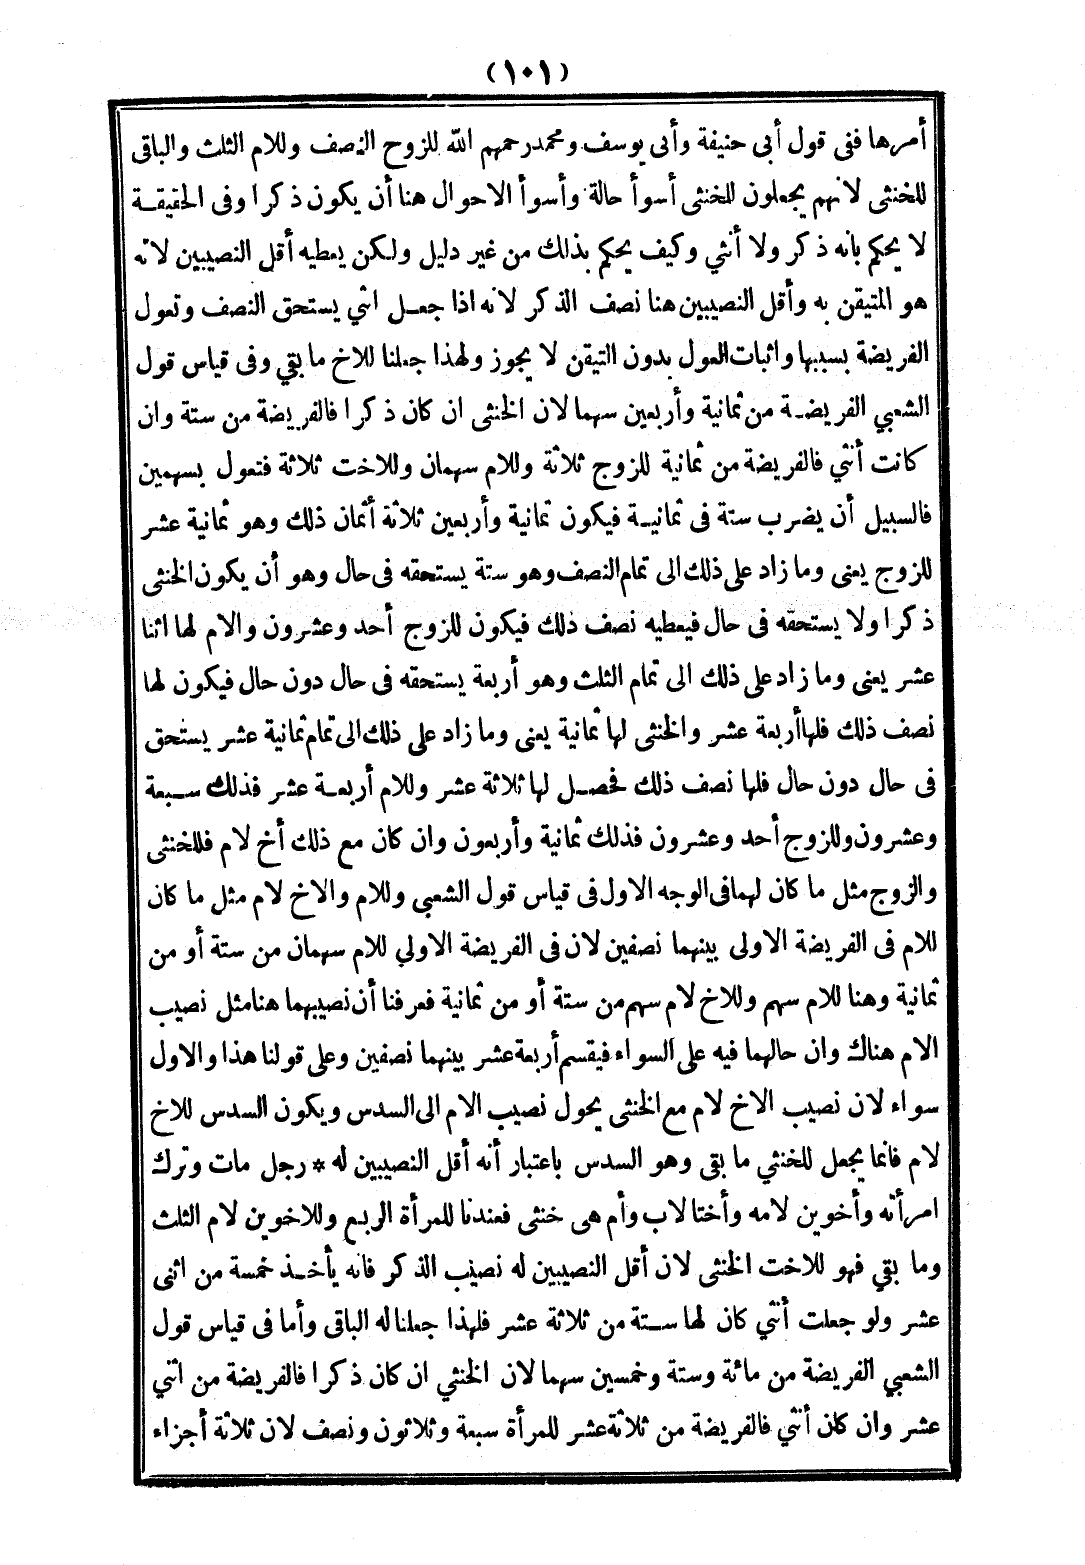 (١٠١)
أمرها ففى قول أبى حنيفة وأبى يوسف ومحمد رحمهم الله للزوج النصف وللام الثلث والباقى
للخنثى لانهم يجعلون للخنثى أسوأ حالة وأسوأ الاحوال هنا أن يكون ذكرا وفى الحقيقة
لا يحكم بانه ذكر ولا أنثي وكيف يحكم بذلك من غير دليل ولكن يعطيه أقل النصيبين لانه
هو المتيقن به وأقل النصيبين هنا نصف الذكر لانه اذا جعل انثي يستحق النصف وتعول
الفريضة بسببها واثبات العول بدون التيقن لا يجوز ولهذا جعلنا للاخ ما بقي وفى قياس قول
الشعبي الفريضة من ثمانية وأربعين سهما لان الخنثى ان كان ذكرا فالفريضة من ستة وان
كانت أنثي فالفريضة من ثمانية للزوج ثلاثة وللام سهمان وللاخت ثلاثة فتعول بسهمين
فالسبيل أن يضرب ستة فى ثمانية فيكون ثمانية وأربعين ثلاثة أثمان ذلك وهو ثمانية عشر
للزوج يعنى وما زاد على ذلك الى تمام النصف وهو ستة يستحقه فى حال وهو أن يكون الخنثى
ذكرا ولا يستحقه فى حال فيعطيه نصف ذلك فيكون للزوج أحد وعشرون والام لها اثنا
عشر يعنى وما زاد على ذلك الى تمام الثلث وهو أربعة يستحقه فى حال دون حال فيكون لها
نصف ذلك فلها أربعة عشر والخنثى لها ثمانية يعنى وما زاد علي ذلك الى تمام ثمانية عشر يستحق
فى حال دون حال فلها نصف ذلك فحصل لها ثلاثة عشر وللام أربعة عشر فذلك سبعة
وعشرون وللزوج أحد وعشرون فذلك ثمانية وأربعون وان كان مع ذلك أخ لام فللخنثى
والزوج مثل ما كان لهما فى الوجه الاول فى قياس قول الشعبي وللام والاخ لام مثل ما كان
للام فى الفريضة الاولى بينهما نصفين لان فى الفريضة الاولي للام سهمان من ستة أو من
ثمانية وهنا للام سهم وللاخ لام سهم من ستة أو من ثمانية فعرفنا أن نصيبهما هنا مثل نصيب
الام هناك وان حالهما فيه على السواء فيقسم أربعة عشر بينهما نصفين وعلى قولنا هذا والاول
سواء لان نصيب الاخ لام مع الخنثى يحول نصيب الام الى السدس ويكون السدس للاخ
لام فانما يجعل للخنثي ما بقى وهو السدس باعتبار أنه أقل النصيبين له * رجل مات وترك
امرأته وأخوين لامه وأختا لاب وأم هى خنثى فعندنا للمرأة الربع وللاخوين لام الثلث
وما بقي فهو للاخت الخنثى لان أقل النصيبين له نصيب الذكر فانه يأخذ خمسة من اثنى
عشر ولو جعلت أنثي كان لها ستة من ثلاثة عشر فلهذا جعلنا له الباقى وأما فى قياس قول
الشعبي الفريضة من مائة وستة وخمسين سهما لان الخنثي ان كان ذكرا فالفريضة من اثني
عشر وان كان أنثي فالفريضة من ثلاثة عشر للمرأة سبعة وثلاثون ونصف لان ثلاثة أجزاء